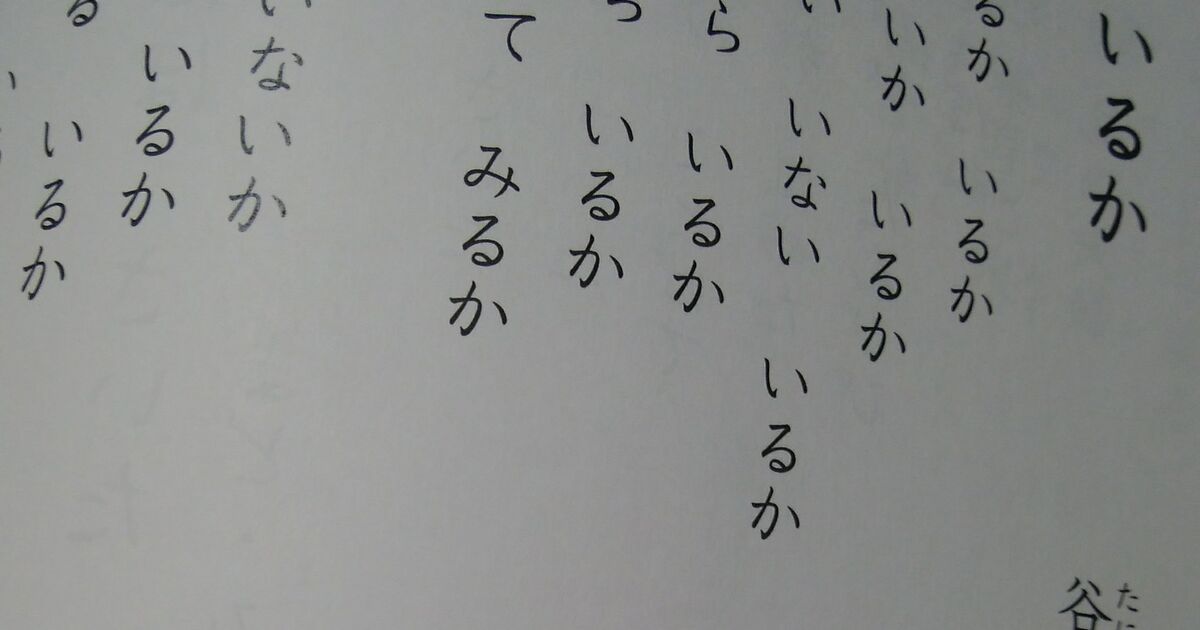 いるか
谷
た
るか いるか
いか いるか
い いない いるか
ら いるか
いるか
て みるか
いないか
いるか
る いるか